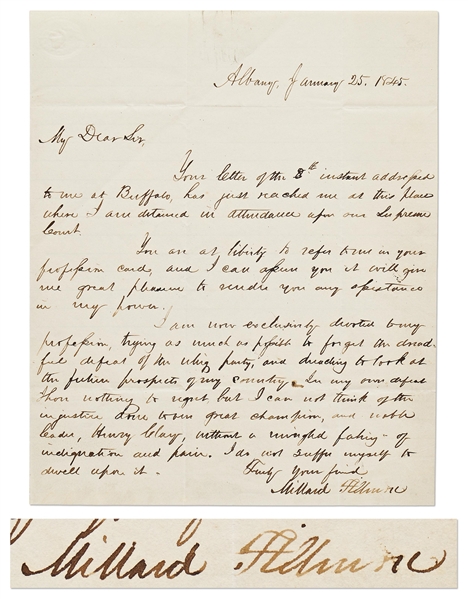 Albany, January 25. 1845.
My Dear Sir,
Your letter of the 8th instant addressed
to me at Buffalo, has just reached me at this place
where I am detained in attendance upon our Supreme
Court.
You are at liberty to refer to me in your
profession card, and I can assure you it will give
me great pleasure to render you any assistance
in my power.
I am now exclusively devoted to my
profession, trying as much as possible to forget the dread-
ful defeat of the whig party, and dreading to look at
the future prospects of my country. In my own defeat
I have nothing to regret but I can not think of the
injustice done to our great champion, and noble
leader, Henry Clay, without a mingled feeling of
indignation and pain. I do not suffer myself to
dwell upon it.
Truly your friend
Millard Fillmore
Millard Fillmore